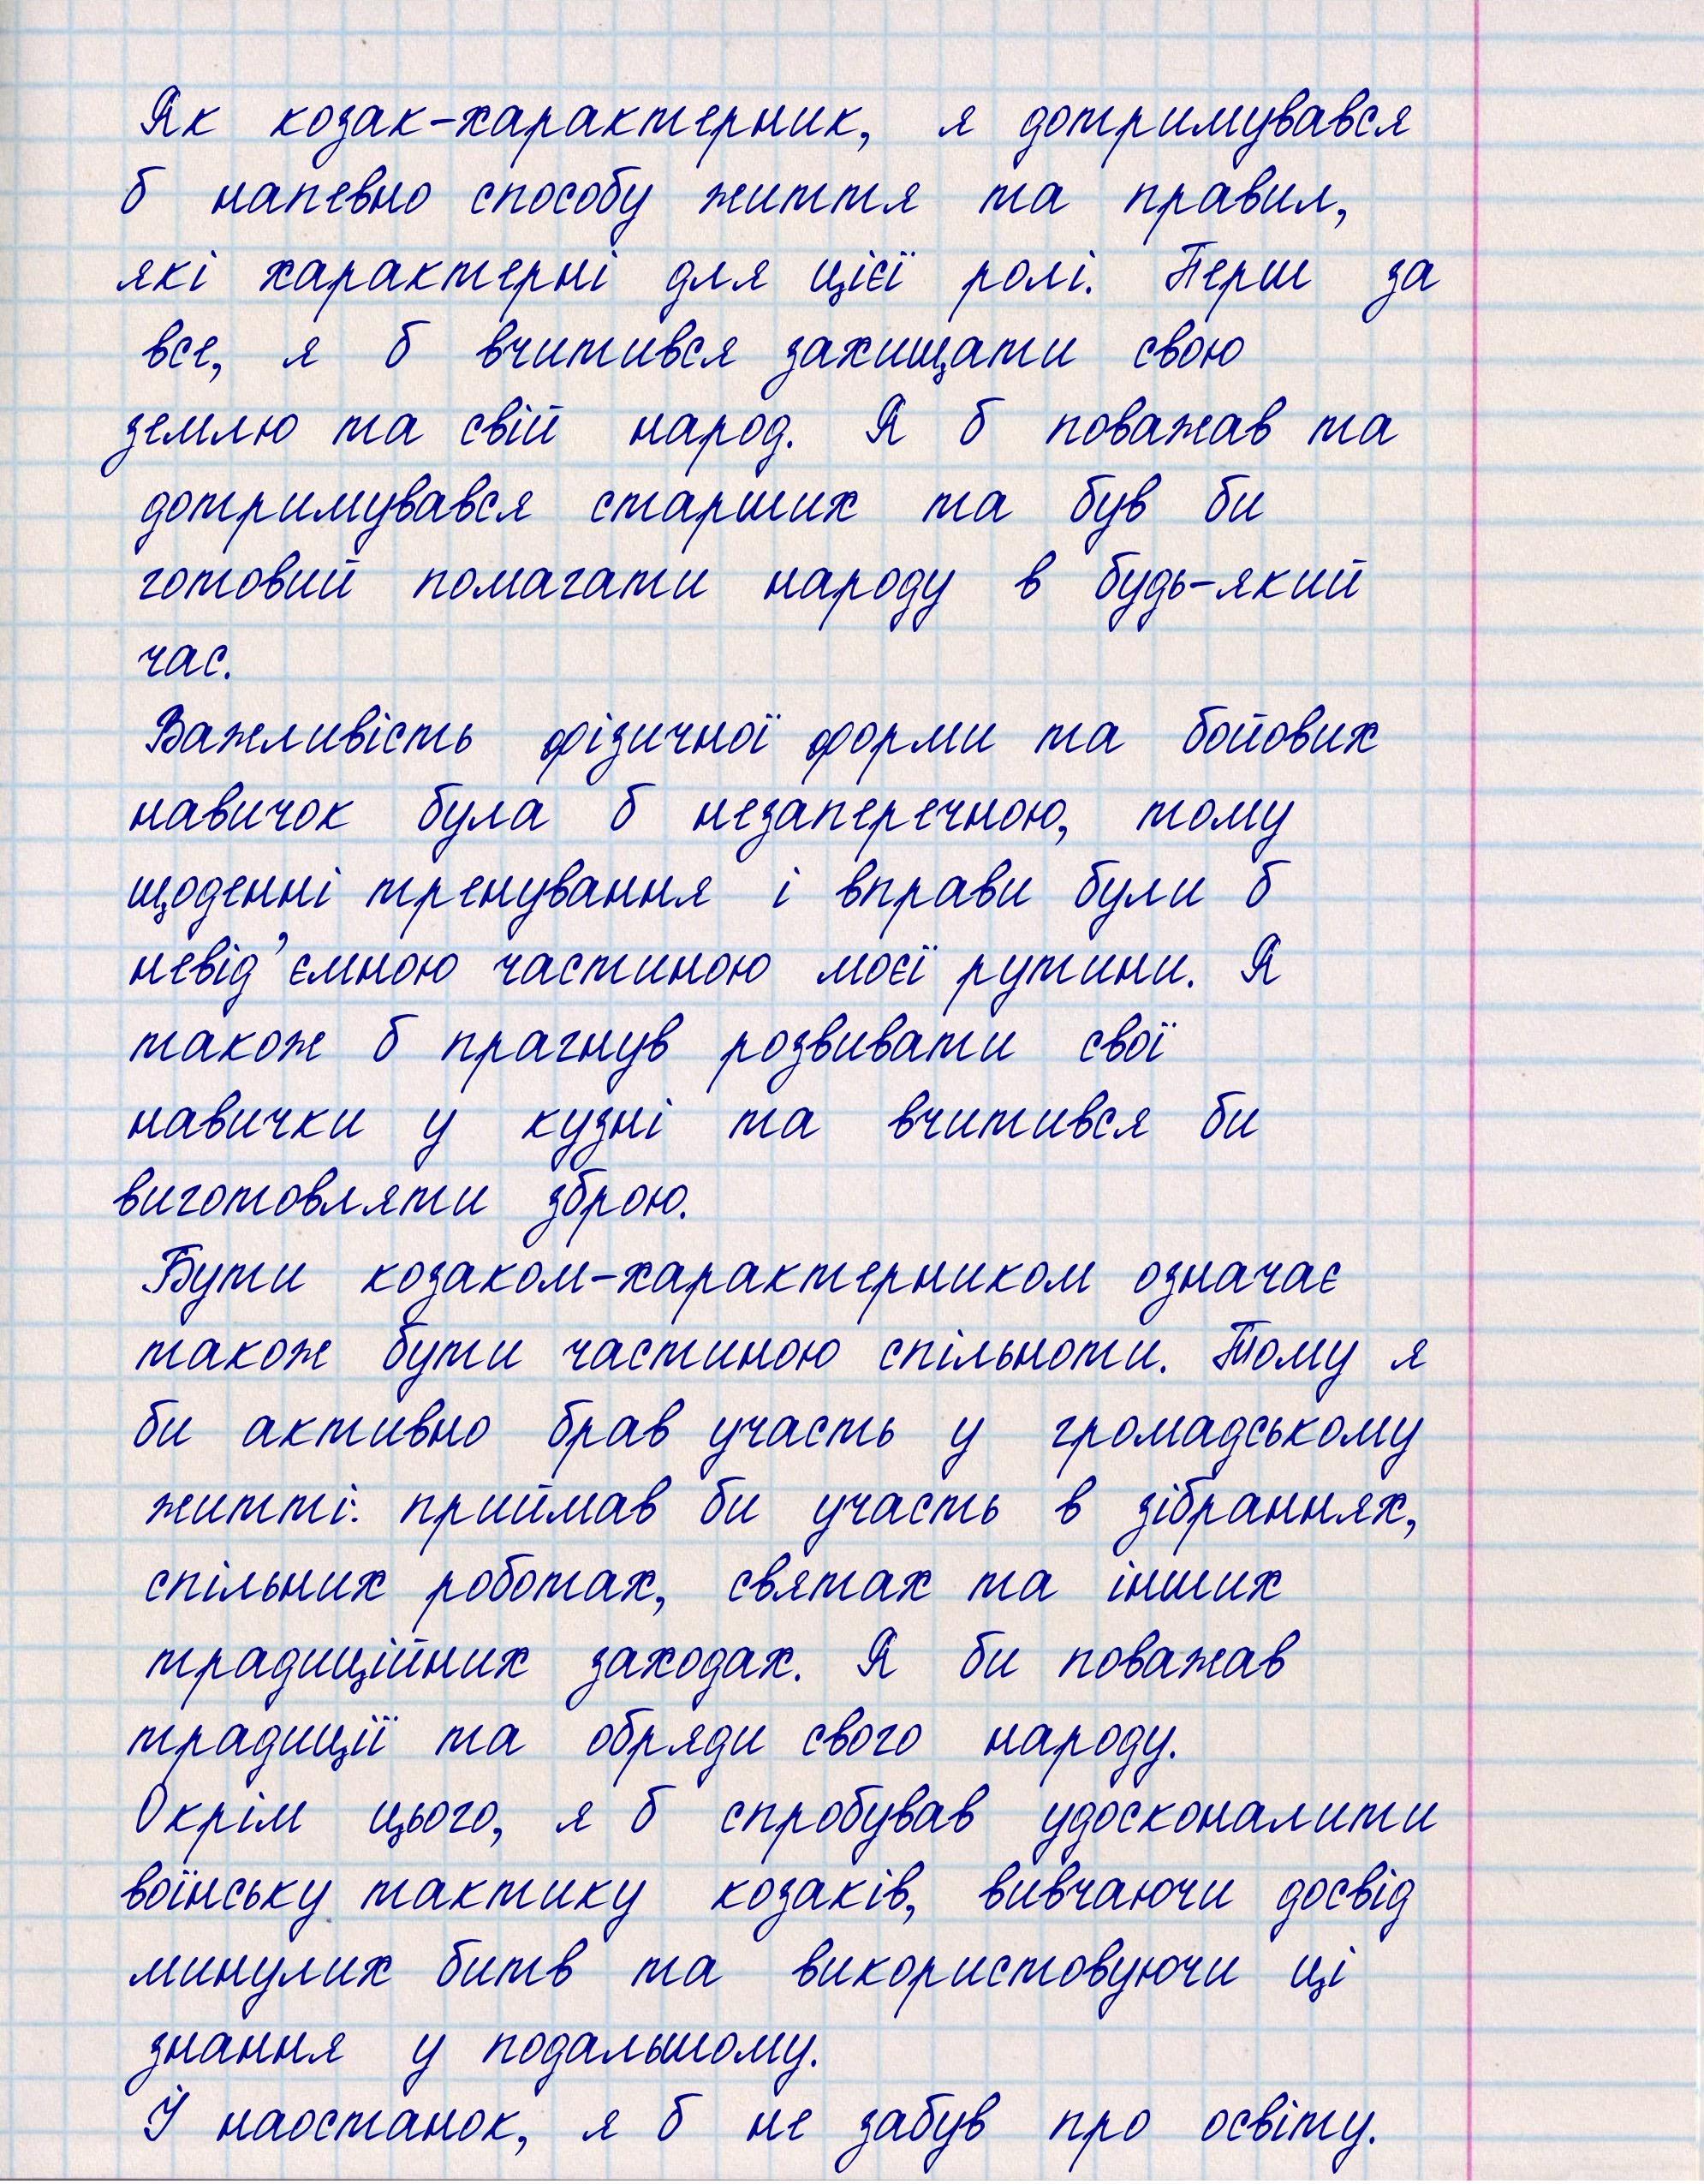 Як козак-характерник, я дотримувався
б напевно способу життя та правил,
які характерні для цієї ролі. Перш за
все, я б вчитився захищати свою
землю та свій народ. Я б поважав та
дотримувався старших та був би
готовий помагати народу в будь-який
час.
Важливість фізичної форми та бойових
навичок була б незаперечною, тому
щоденні тренування і вправи були б
невід'ємною частиною моєї рутини. Я
також б прагнув розвивати свої
навички у кузні та вчитився би
виготовляти зброю.
Бути козаком-характерником означає
також бути частиною спільноти. Тому я
би активно брав участь у громадському
житті: приймав би участь в зібраннях,
спільних роботах, святах та інших
традиційних заходах. Я би поважав
традиції та обряди свого народу.
Окрім цього, я б спробував удосконалити
воїнську тактику козаків, вивчаючи досвід
минулих битв та використовуючи ці
знання у подальшому.
Й наостанок, я б не забув про освіту.